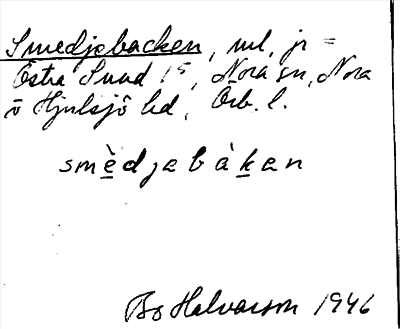 Smedjebacken, ml, jr =
Östra Sund 1⁵, Nora sn, Nora
o Hjulsjö hd, Örb. l.
smèdjebàken
Bo Halvarson 1946